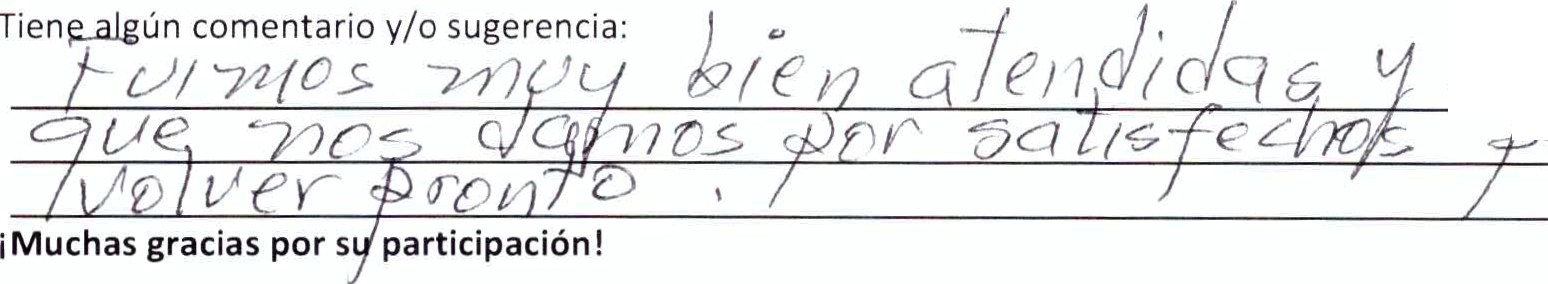 Tiene algún comentario y/o sugerencia:
Fuimos muy bien atendidas y
que nos damos por satisfechos y
volver pronto.
¡Muchas gracias por su participación!